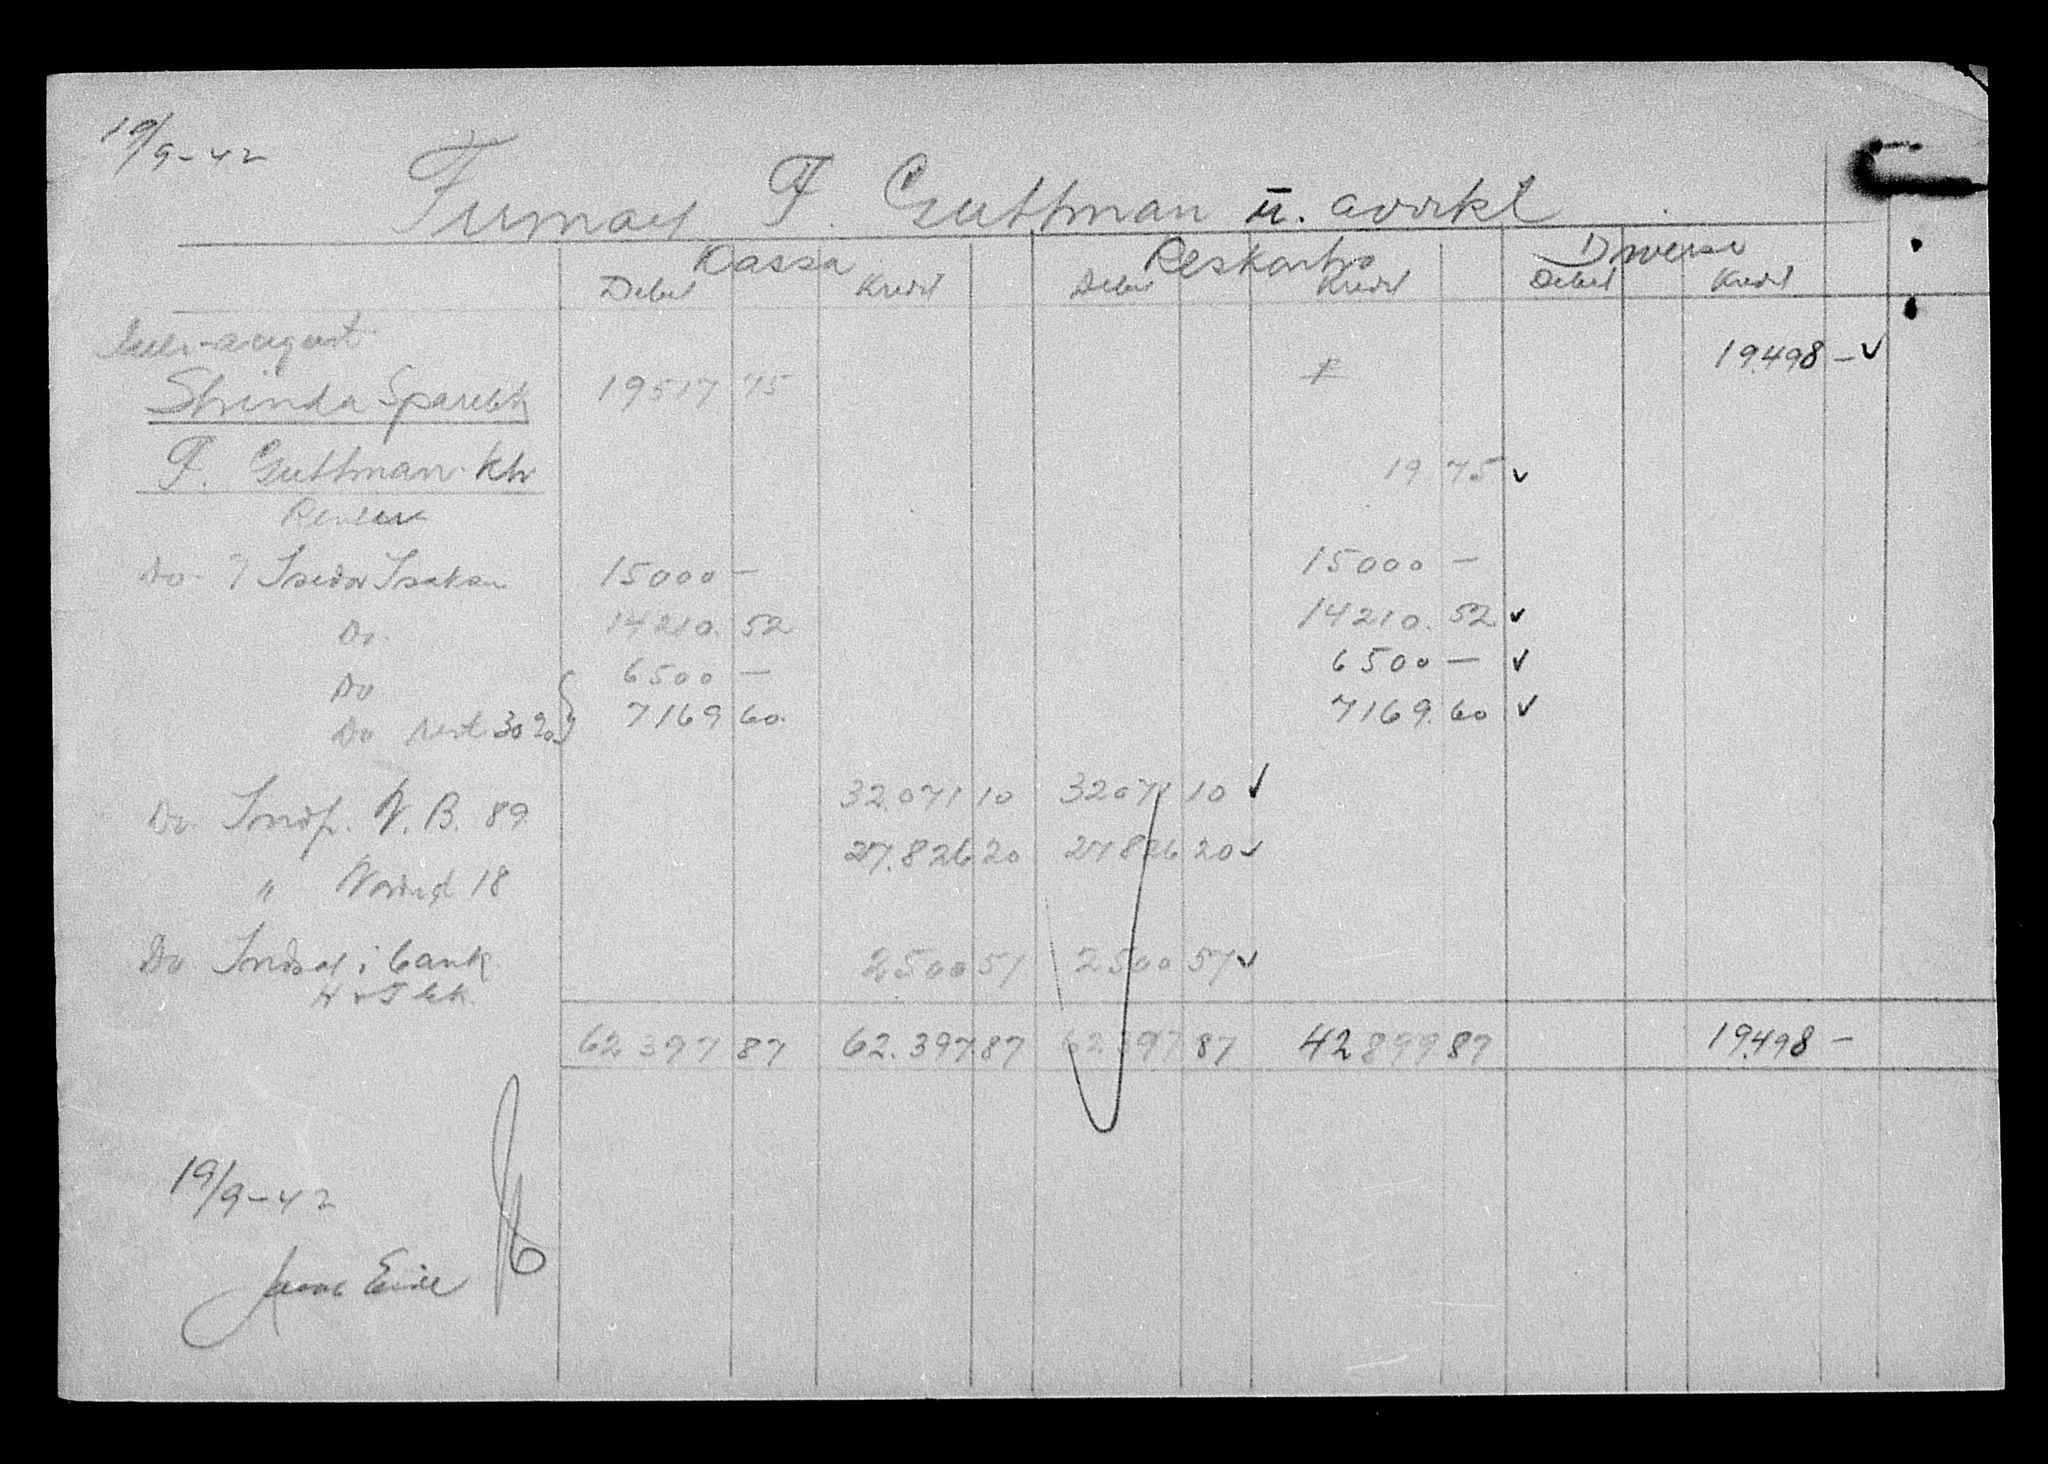 19/9-42
Firmaet F. Guttman u. avvikl
Kassa Reskontro Diverse
Debet Kredit Debet Kredit Debet Kredit
august 19.498 - ✓
Strinda Sparebk 19517 75
F. Guttman. kto 19 75 ✓
Renter
Do. Isidor Isaksen 15000 - 15000 -
Do. 14210. 52 14210. 52 ✓
Do 6500 - 6500 - ✓
Do rest 30 20 7169 60. 7169. 60 ✓
Do. Indf. N. B. 89 32.071 10 32071 10 ✓
" 18 27.826 20 27826 20 ✓
Do i bank 2500 57 2500 57 ✓
62 397 87 62.397 87 62 397 87 42 899 87 19.498 -
19/9-42
Eide